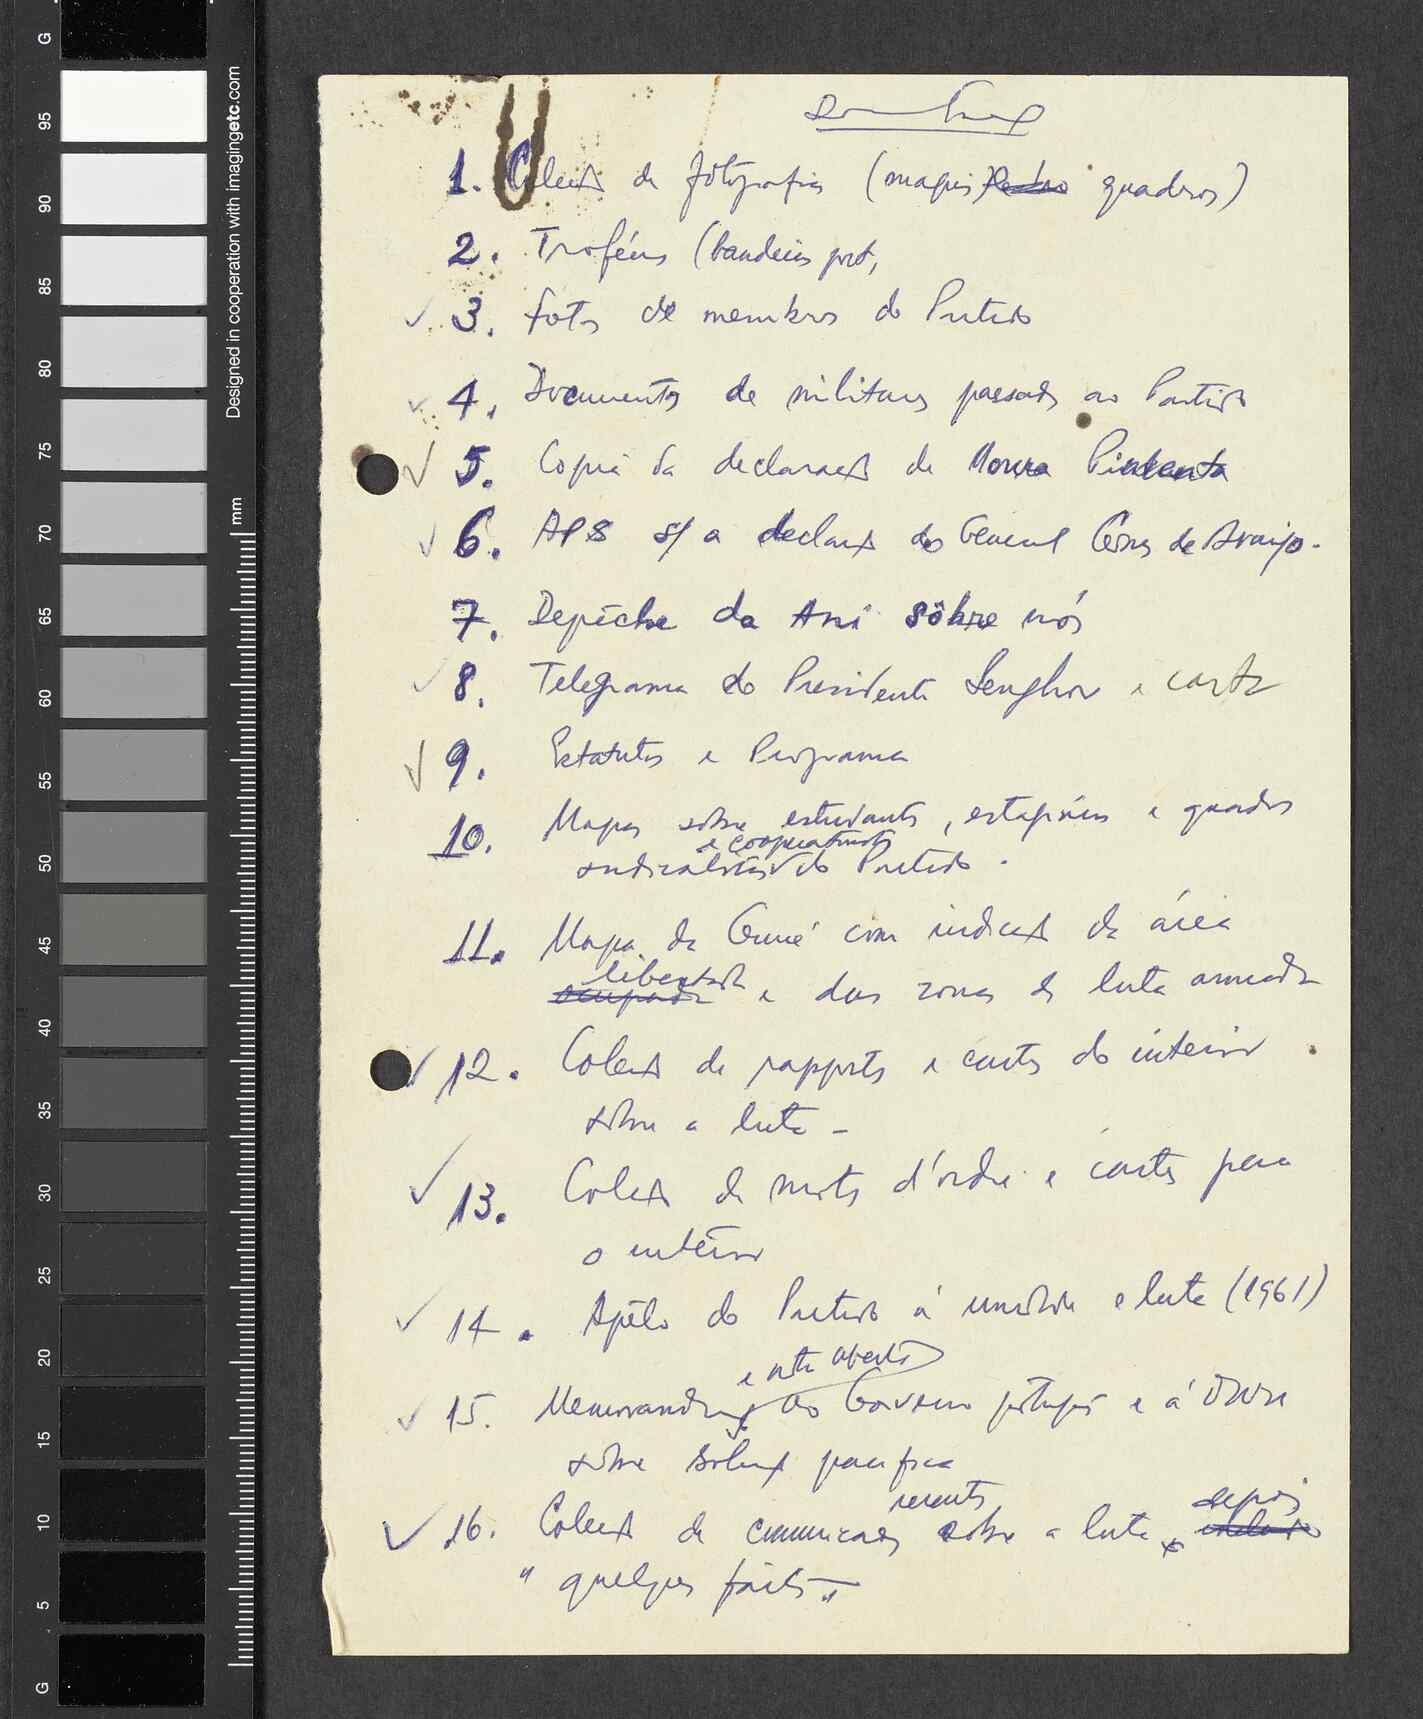 1. Colecção de fotografias (maquis) quadros)
2. Troféus (bandeiras port,
3. fotos de membros do Partido
4. Documentos de militares passados ao Partido
5. Copia da declaração de Moura Pimenta
6. APS s/ a declaração do General de Araújo.
7. Depêche da Ani sôbre nós
8. Telegrama do Presidente Senghor e carta
9. Estatutos e Programa
10. Mapas sobre estudantes, estagiários e quadros
e cooperativistas
sindicalistas do Partido.
11. Mapa da Guiné com indicação da área
libertada
ocupada e das zonas de luta armada
12. Colecção de rapports e cartas do interior
sobre a luta -
13. Colecção de mots d'ordre e cartas para
o interior
14. Apêlo do Partido à unidade e luta (1961)
e nota aberta
15. Memorandum ao Governo português e à ONU
sobre solução pacifica
recentes depois
16. Colecção de comunicações sobre a luta
" quelques faits "
G
95
90
85
80
75
70
65
60
55
50
45
40
35
30
25
20
15
10
5
G
Designed in cooperation with imagingetc.com
mm